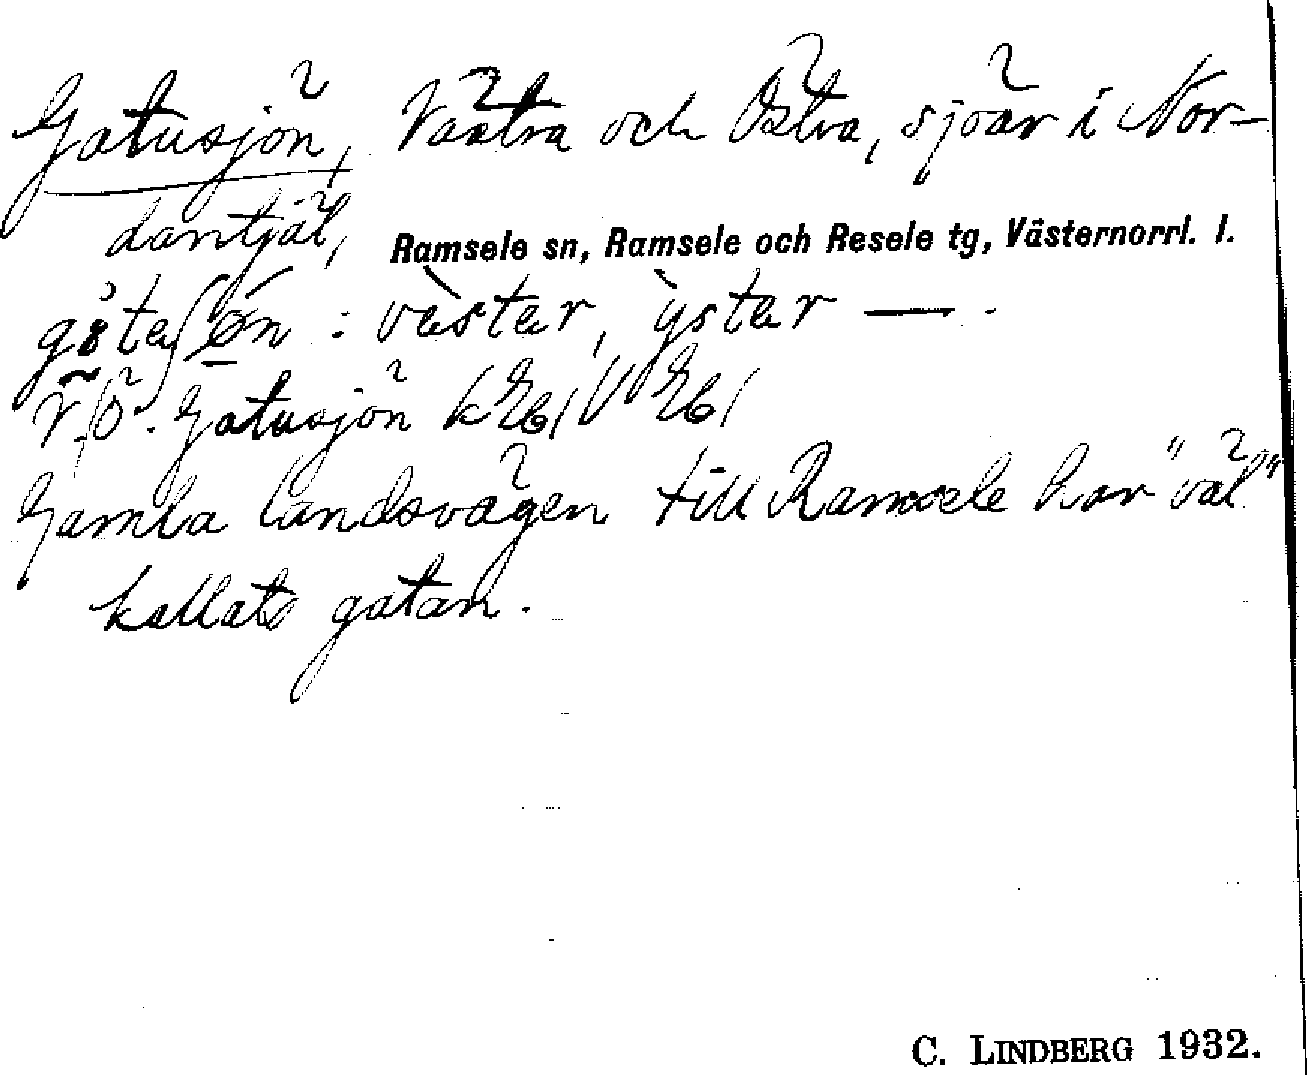 Gatusjön, Västra och Östra, sjöar i Nor-
dantjäl, Ramsele sn, Ramsele och Resele tg, Västernorrl. l.
: vèstar, ỳstar — .
V.Ö. Gatusjön
Gamla landsvägen till Ramsele har "väl"
kallats gatan.
C. LINDBERG 1932.